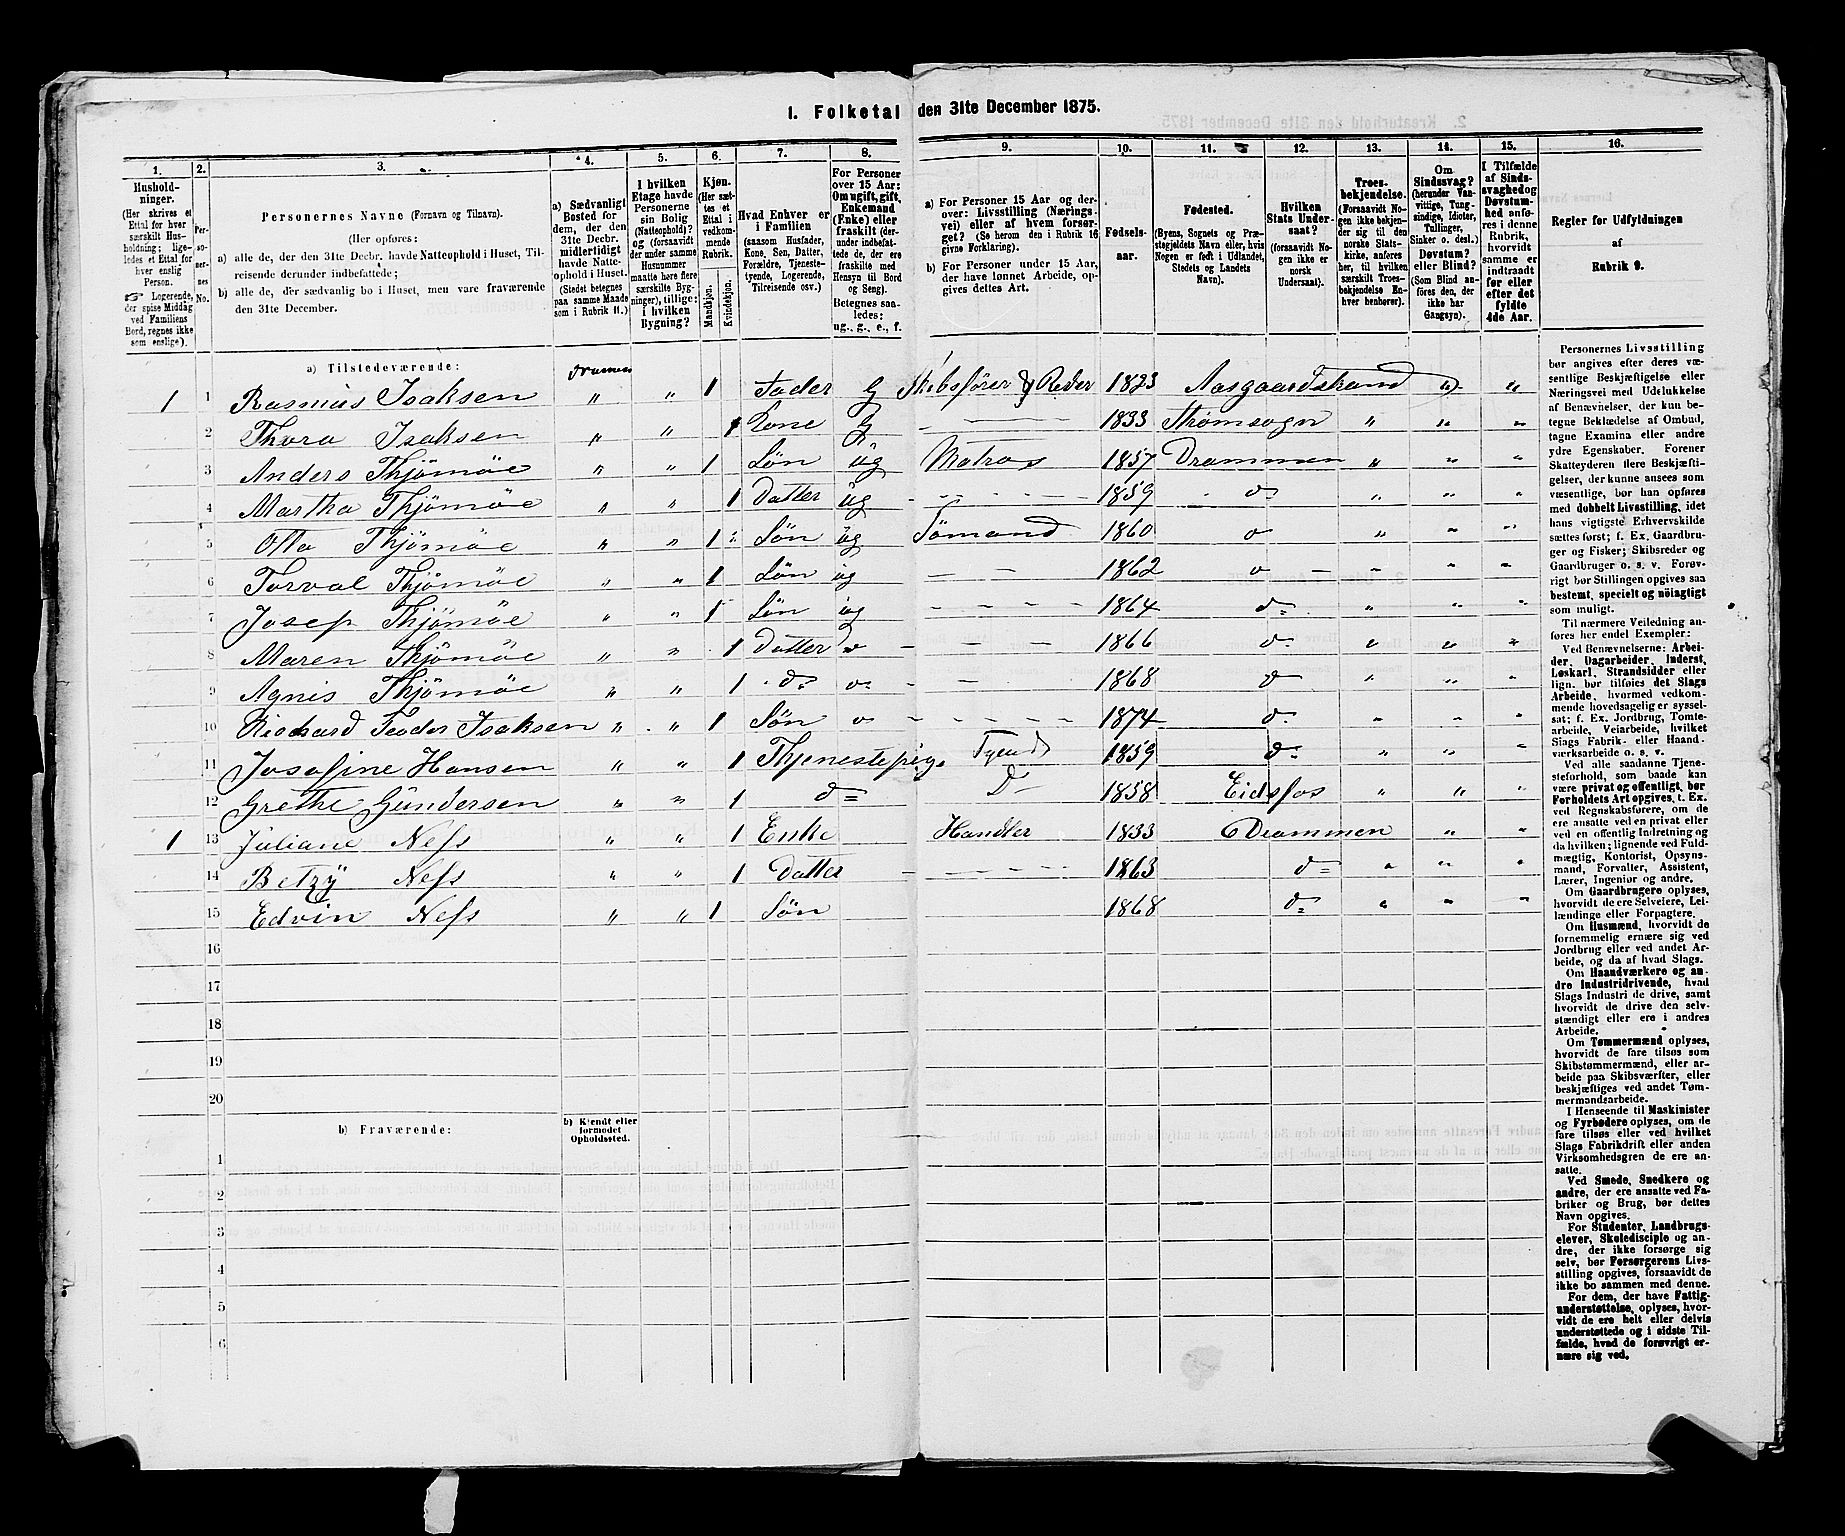 1. Folketal den 31te December 1875.
1. 2. 3. 4. 5. 6. 7. 8. 9. 10. 11. 12. 13. 14. 15. 16.
Hushold-
ninger.
(Her skrives et
Ettal for hver
særskilt Hus-
holdning; lige-
ledes et Ettal for
hver enslig
Person.
☞ Logerende,
der spise Middag
ved Familiens
Bord, regnes ikke
som enslige).
Per-
so-
ner-
nes
No.
Personernes Navne (Fornavn og Tilnavn).
(Her opføres:
a) alle de, der den 31te Decbr. havde Natteophold i Huset, Til-
reisende derunder indbefattede;
b) alle de, der sædvanlig bo i Huset, men vare fraværende
den 31te December.
a) Sædvanligt
Bosted for
dem, der den
31te Decbr.
midlertidigt
havde Natte-
ophold i Huset.
(Stedet betegnes
paa samme Maade
som i Rubrik 11.)
I hvilken
Etage havde
Personerne
sin Bolig
(Natteophold)?
og (forsaavidt
der under samme
Husnummer
maatte høre flere
særskilte Byg-
ninger), tillige:
i hvilken
Bygning?
Kjøn.
(Her sæt-
tes et
Ettal i
vedkom-
mende
Rubrik.
Mandkjøn.
Kvindekjøn.
Hvad Enhver er
i Familien
(saasom Husfader,
Kone, Søn, Datter,
Forældre, Tjeneste-
tyende, Logerende,
Tilreisende osv.)
For Personer
over 15 Aar:
Om ugift, gift,
Enkemand
(Enke) eller
fraskilt (der-
under indbefat-
tede de, der ere
fraskilte med
Hensyn til Bord
og Seng).
Betegnes saa-
ledes:
ug., g., e., f.
a) For Personer 15 Aar og der-
over: Livsstilling (Nærings-
vei) eller af hvem forsør-
get? (Se herom den i Rubrik 16
givne Forklaring).
b) For Personer under 15 Aar,
der have lønnet Arbeide, op-
gives dettes Art.
Fødsels-
aar.
Fødested.
(Byens, Sognets og Præ-
stegjeldets Navn eller, hvis
Nogen er født i Udlandet,
Stedets og Landets
Navn).
Hvilken
Stats Under-
saat?
(forsaavidt No-
gen ikke er
norsk
Undersaat).
Troes-
bekjendelse.
(Forsaavidt No-
gen ikke bekjen-
der sig til den
norske Stats-
kirke, anføres
her, til hvilken
særskilt Troes-
bekjendelse En-
hver henhører).
Om
Sindssvag?
(herunder Van-
vittige, Tung-
sindige, Idioter,
Tullinger,
Sinker o. desl.)
Døvstum?
eller Blind?
(Som Blind an-
føres den, der
ikke har
Gangsyn).
I Tilfælde
af Sinds-
svaghed og
Døvstum-
hed anfø-
res i denne
Rubrik,
hvorvidt
samme er
indtraadt
før eller
efter det
fyldte
4de Aar.
Regler før Udfyldningen
af
Rubrik 9.
a) Tilstedeværende:
Dramen
1 1 Rasmus Isaksen " " 1 Fader G Skibsfører & Reder 1823 Aasgaardstrand " "
2 Thora Isaksen " " 1 Kone G - - - 1833 Strømsogn " " "
3 Anders Thjømøe " " 1 Søn úg Matros 1857 Drammen " " "
4 Martha Thjømøe " " 1 Datter úg - - - 1859 do " " "
5 Otto Thjømøe " " 1 Søn úg Sømand 1860 o " " "
6 Torval Thjømøe " " 1 Søn úg - - 1862 o - " " "
7 Josep Thjømøe " " 1 Søn úg - - - 1864 do " " "
8 Maren Thjømøe " " 1 Datter o - - - 1866 do " " "
9 Agnis Thjømøe " " 1 do o - - 1868 do " " "
10 Richard Teodor Isaksen " " 1 Søn o - - - 1874 do " " "
11 Josefine Hansen " " 1 Thjenestepige Tyende 1859 do " " "
12 Grethe Gúndersen " " 1 do D- 1858 Eidsfos " " "
1 13 Júliane Ness " " 1 Enke Handler 1833 Drammen " "
14 Betzÿ Ness " " 1 Datter - - - 1863 do " " "
15 Edvin Ness " " 1 Søn 1868 do " " "
16
17
18
19
20
b) Fraværende:
b) Kjendt eller
formodet
Opholdssted.
1
2
3
4
5
6
Personernes Livsstilling
bør angives efter deres væ-
sentlige Beskjæftigelse eller
Næringsvei med Udelukkelse
af Benævnelser, der kun be-
tegne Beklædelse af Ombud,
tagne Examina eller andre
ydre Egenskaber. Forener
Skatteyderen flere Beskjæfti-
gelser, der kunne ansees som
væsentlige, bør han opføres
med dobbelt Livsstilling, idet
hans vigtigste Erhvervskilde
sættes først; f. Ex. Gaardbru-
ger og Fisker; Skibsreder og
Gaardbruger o. s. v. Forøv-
rigt bør Stillingen opgives saa
bestemt, specielt og nöiagtigt
som muligt.
Til nærmere Veiledning an-
føres her endel Exempler:
Ved Benævnelserne: Arbei-
der, Dagarbeider, Inderst,
Løskarl, Strandsidder eller
lign. bør tilføies det Slags
Arbeide, hvormed vedkom-
mende hovedsagelig er syssel-
sat; f. Ex. Jordbrug, Tomte-
arbeide, Veiarbeide, hvilket
Slags Fabrik- eller Haand-
værksarbeide o. s. v.
Ved alle saadanne Tjene-
steforhold, som baade kan
være privat og offentligt, bør
Forholdets Art opgives, t. Ex.
ved Regnskabsførere, om de
ere ansatte ved en privat eller
ved en offentlig Indretning og
da hvilken; lignende ved Fuld-
mægtig, Kontorist, Opsyns-
mand, Forvalter, Assistent,
Lærer, Ingeniør og andre.
Om Gaardbrugere oplyses,
hvorvidt de ere Selveiere, Lei-
lændinge eller Forpagtere.
Om Husmænd, hvorvidt de
fornemmelig ernære sig ved
Jordbrug eller ved andet Ar-
beide, og da af hvad Slags.
Om Haandværkere og an-
dre Industridrivende, hvad
Slags Industri de drive, samt
hvorvidt de drive den selv-
stændigt eller ere i andres
Arbeide.
Om Tømmermænd oplyses,
hvorvidt de fare tilsøs som
Skibstømmermænd, eller ar-
beide paa Skibsværfter, eller
beskjæftiges ved andet Tøm-
mermandsarbeide.
I Henseende til Maskinister
og Fyrbødere oplyses, om de
fare tilsøs eller ved hvilket
Slags Fabrikdrift eller anden
Virksomhedsgren de ere an-
satte.
Ved Smede, Snedkere og
andre, der ere ansatte ved Fa-
briker og Brug, bør dettes
Navn opgives.
For Studenter, Landbrugs-
elever, Skoledisciple og an-
dre, der ikke forsørge sig
selv, bør Forsørgerens Livs-
stilling opgives, forsaavidt de
ikke bo sammen med denne.
For dem, der have Fattig-
understøttelse, oplyses, hvor-
vidt de ere helt eller delvis
understøttede og i sidste Til-
fælde, hvad de forøvrigt er-
nære sig ved.